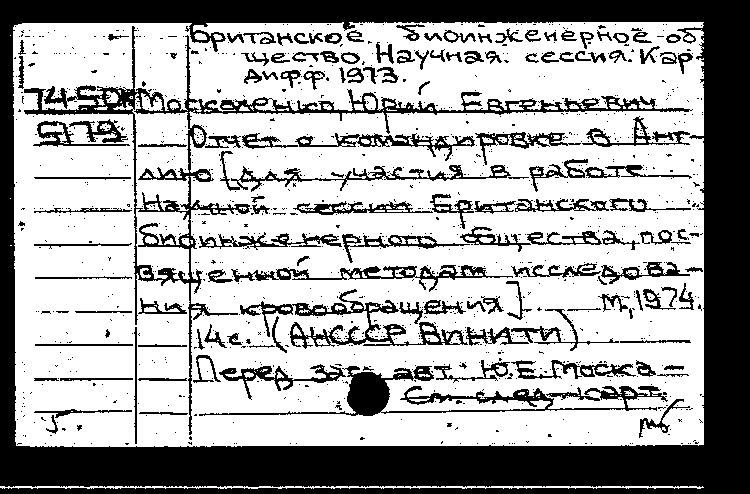 Британское биоинженерное об
щество. Научная сессия. Кар-
дифф. 1973.
74-5DK Москаленко, Юрий Евгеньевич
5179 Отчет о командировке в Анг-
лию [для участия в работе
Научной сессии Британского
биоинженерного общества, пос-
вященной методам исследова-
ния кровообращения]. М., 1974.
14 с. (АНСССР. ВИНИТИ)
Перед заг. авт.: Ю.Е. Моска-
См. след. карт.